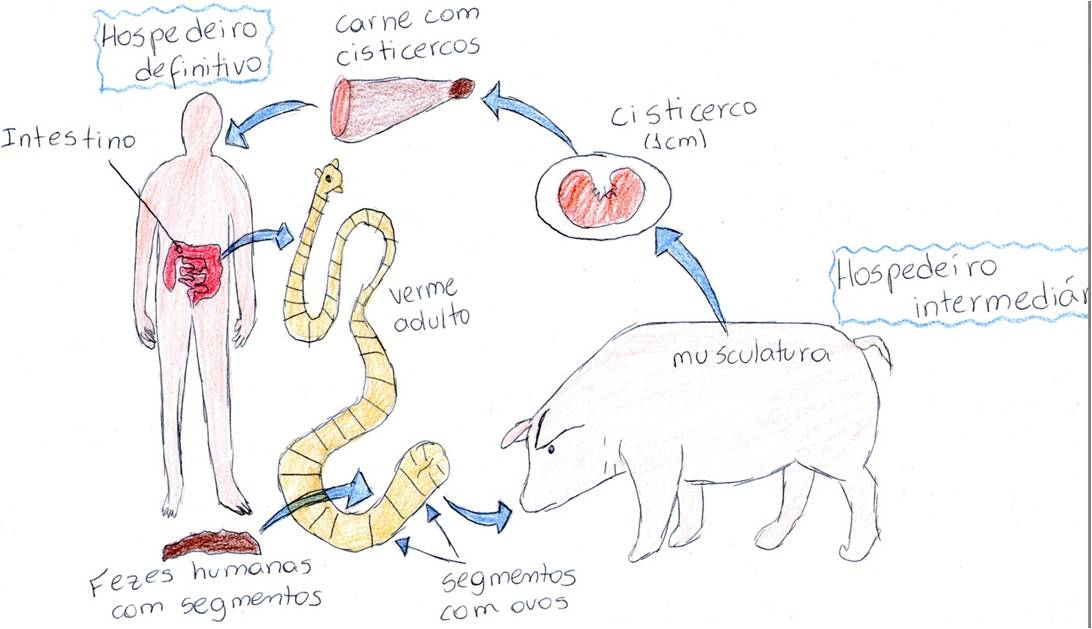 Hospedeiro
definitivo
carne com
cisticercos
Intestino
cisticerco
(1cm)
Hospedeiro
intermediár
verme
adulto
musculatura
Fezes humanas
com segmentos
segmentos
com ovos